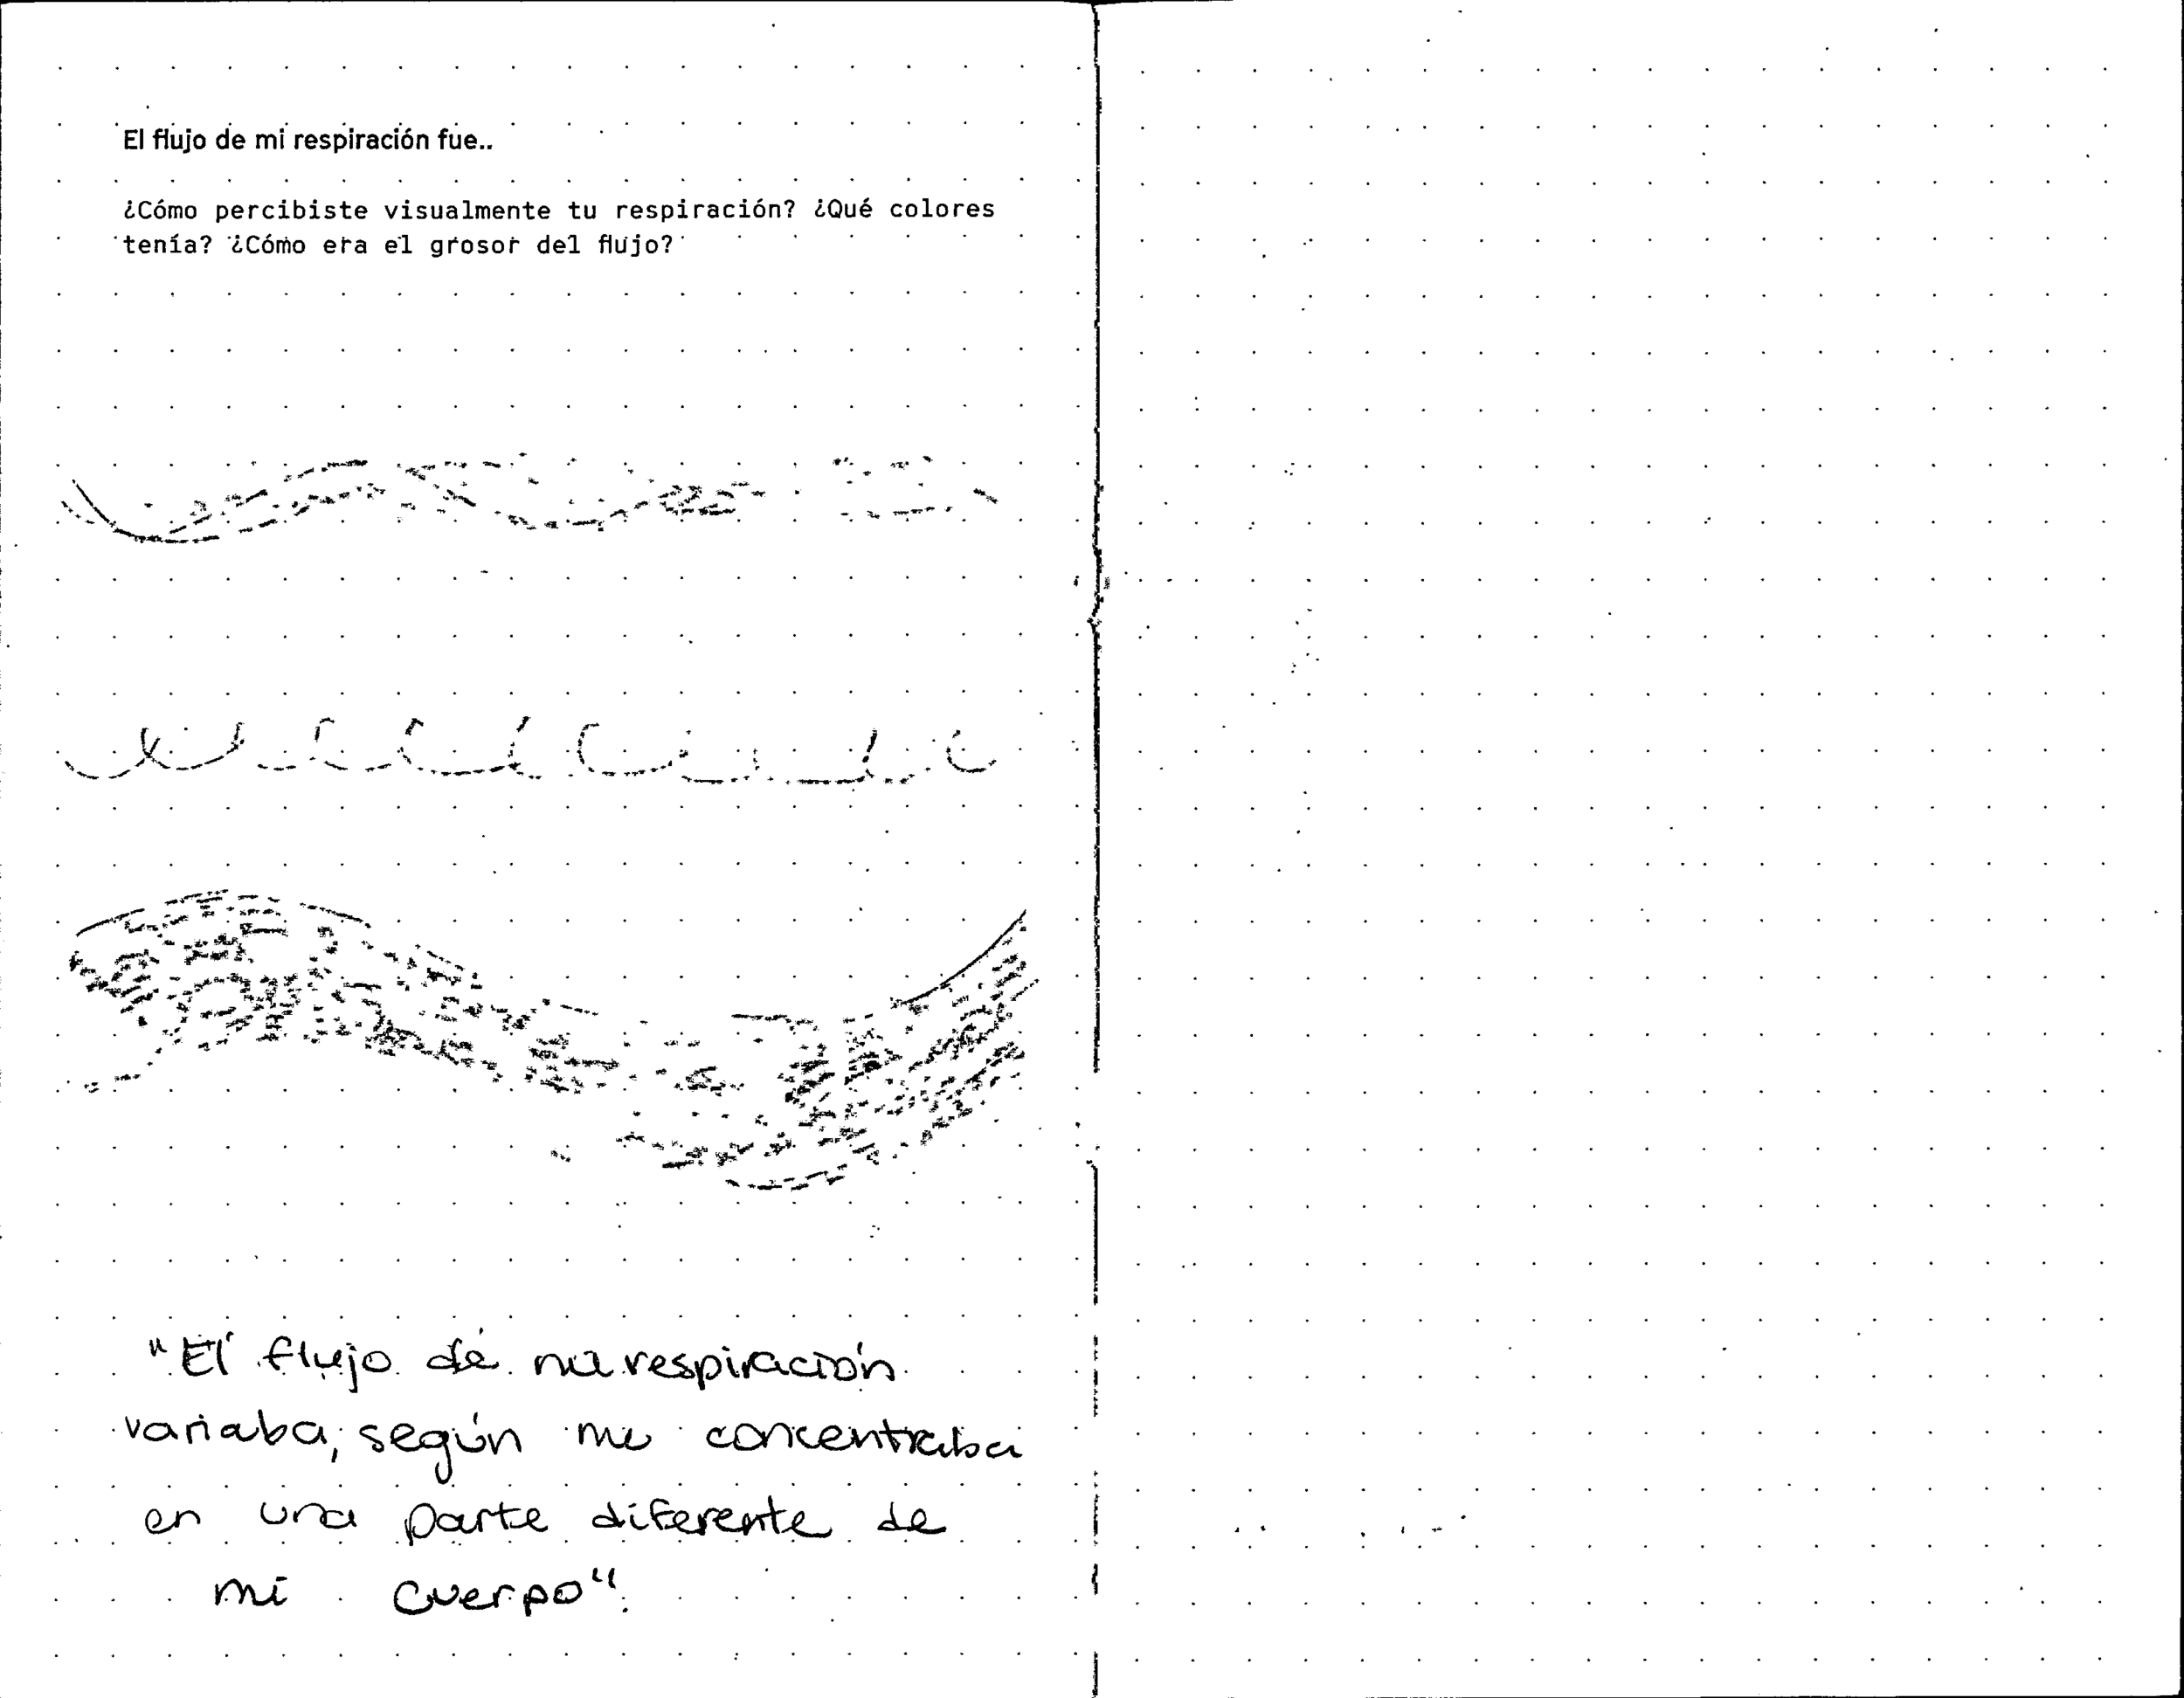 El flujo de mi respiración fue..
¿Cómo percibiste visualmente tu respiración? ¿Qué colores
tenía? ¿Cómo era el grosor del flujo?
"El flujo de mi respiración
variaba, según me concentraba
en una parte diferente de
mi cuerpo".